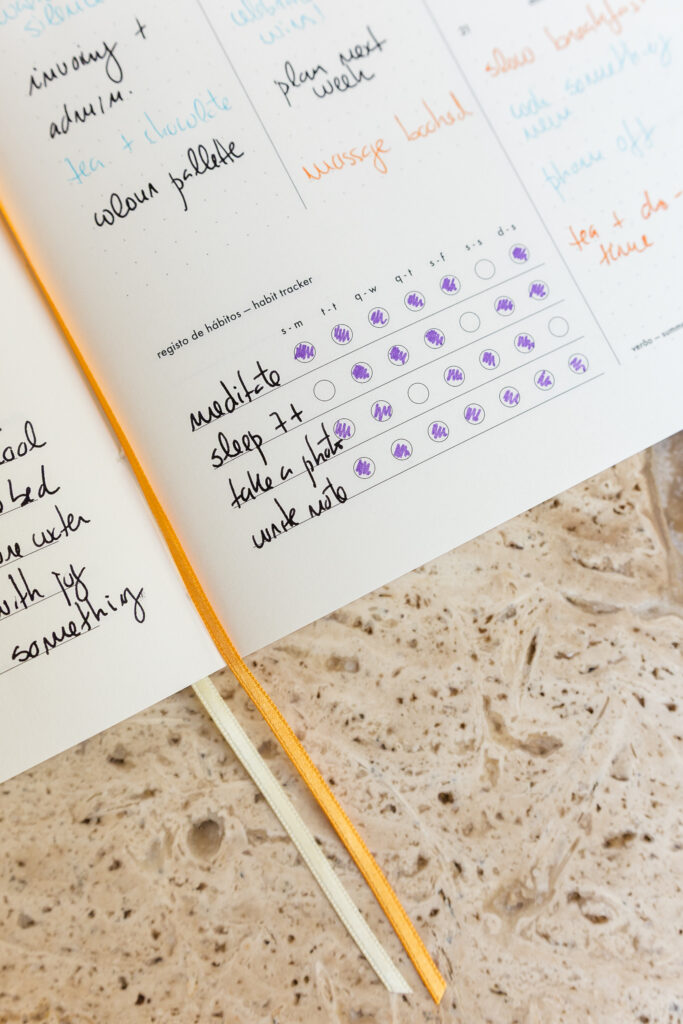 invoicing +
admin.
tea + chocolate
colour pallette
plan next
week
massage booked
21
slow breakfast
code something
new
phone off
tea + da -
time
registo de hábitos — habit tracker
s - m
t - t
q - w
q - t
s - f
s - s
d - s
meditate
sleep 7+
take a photo
write note
verão — summ
ool
bed
ore water
with joy
something